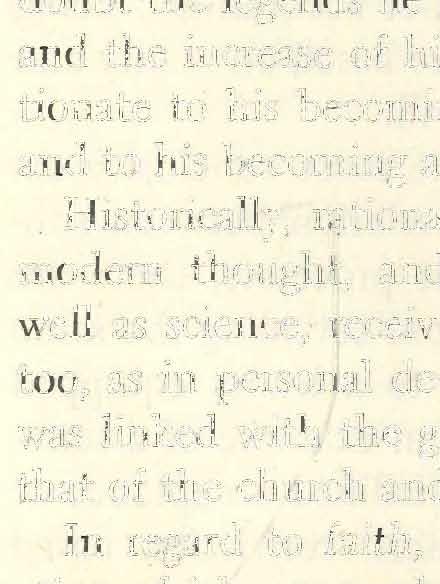 doubt the legends he
and the increase of hi
tionate to his becomin
and to his becoming a
Historically, rationa
modern thought, and
well as science, receiv
too, as in personal de
was linked with the g
that of the church and
In regard to faith,